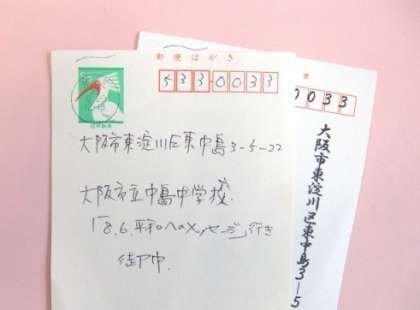 郵便はがき
533-0033
大阪市東淀川区東中島3-5-22
大阪市立中島中学校
「8.6.平和へのメッセージ」行き
御中
0033
大阪市東淀川区東中島3-5